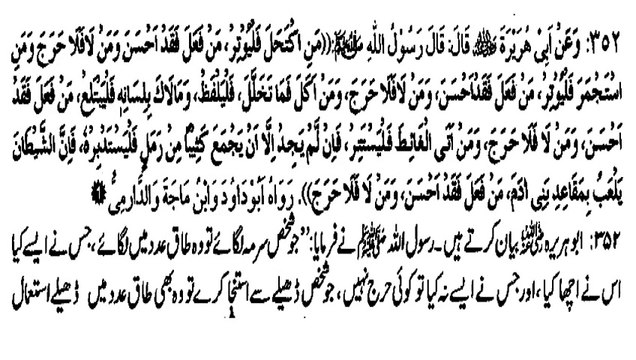 ۳۵۲: وَعَنْ اَبِیْ هُرَیْرَةَ ؓ قَالَ: قَالَ رَسُوْلُ اللهِ ﷺ: ((مَنِ اكْتَحَلَ فَلْیُوْتِرْ، مَنْ فَعَلَ فَقَدْ اَحْسَنَ وَمَنْ لَا فَلَا حَرَجَ وَمَنِ
اسْتَجْمَرَ فَلْیُوْتِرْ، مَنْ فَعَلَ فَقَدْ اَحْسَنَ، وَمَنْ لَا فَلَا حَرَجَ، وَمَنْ اَكَلَ فَمَا تَخَلَّلَ، فَلْیَلْفِظْ، وَمَا لَاكَ بِلِسَانِهٖ فَلْیَبْتَلِعْ، مَنْ فَعَلَ فَقَدْ
اَحْسَنَ، وَمَنْ لَا فَلَا حَرَجَ، وَمَنْ اَتَی الْغَائِطَ فَلْیَسْتَتِرْ، فَاِنْ لَّمْ یَجِدْ اِلَّا اَنْ یَجْمَعَ كَثِیْبًا مِنْ رَمْلٍ فَلْیَسْتَدْبِرْهُ، فَاِنَّ الشَّیْطَانَ
یَلْعَبُ بِمَقَاعِدِ بَنِیْ اٰدَمَ، مَنْ فَعَلَ فَقَدْ اَحْسَنَ، وَمَنْ لَا فَلَا حَرَجَ)). رَوَاهُ اَبُوْدَاوٗدَ وَابْنُ مَاجَةَ وَالدَّارِمِیُّ
۳۵۲: ابوہریرہ ؓ بیان کرتے ہیں۔ رسول اللہ ﷺ نے فرمایا: ”جو شخص سرمہ لگائے تو وہ طاق عدد میں لگائے، جس نے ایسے کیا
اس نے اچھا کیا، اور جس نے ایسے نہ کیا تو کوئی حرج نہیں، جو شخص ڈھیلے سے استنجا کرے تو وہ بھی طاق عدد میں ڈھیلے استعمال